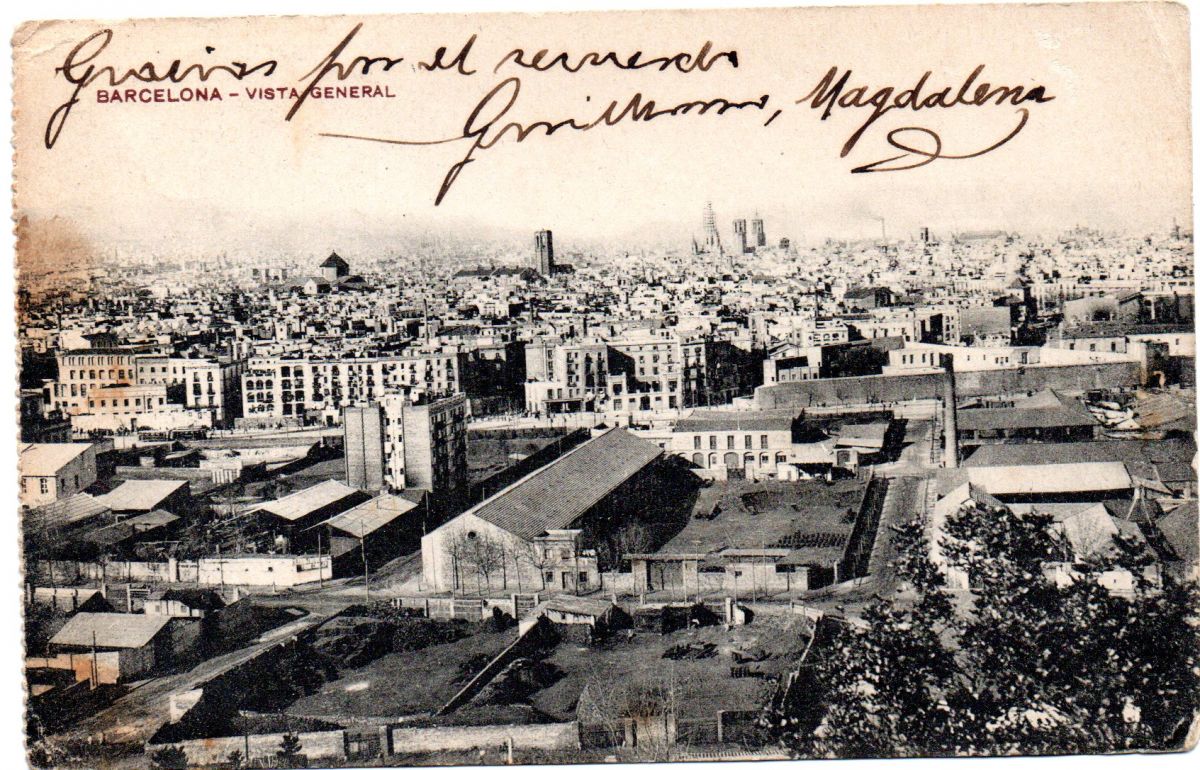 Gracias por el recuerdo
BARCELONA - VISTA GENERAL
Guillermo, Magdalena